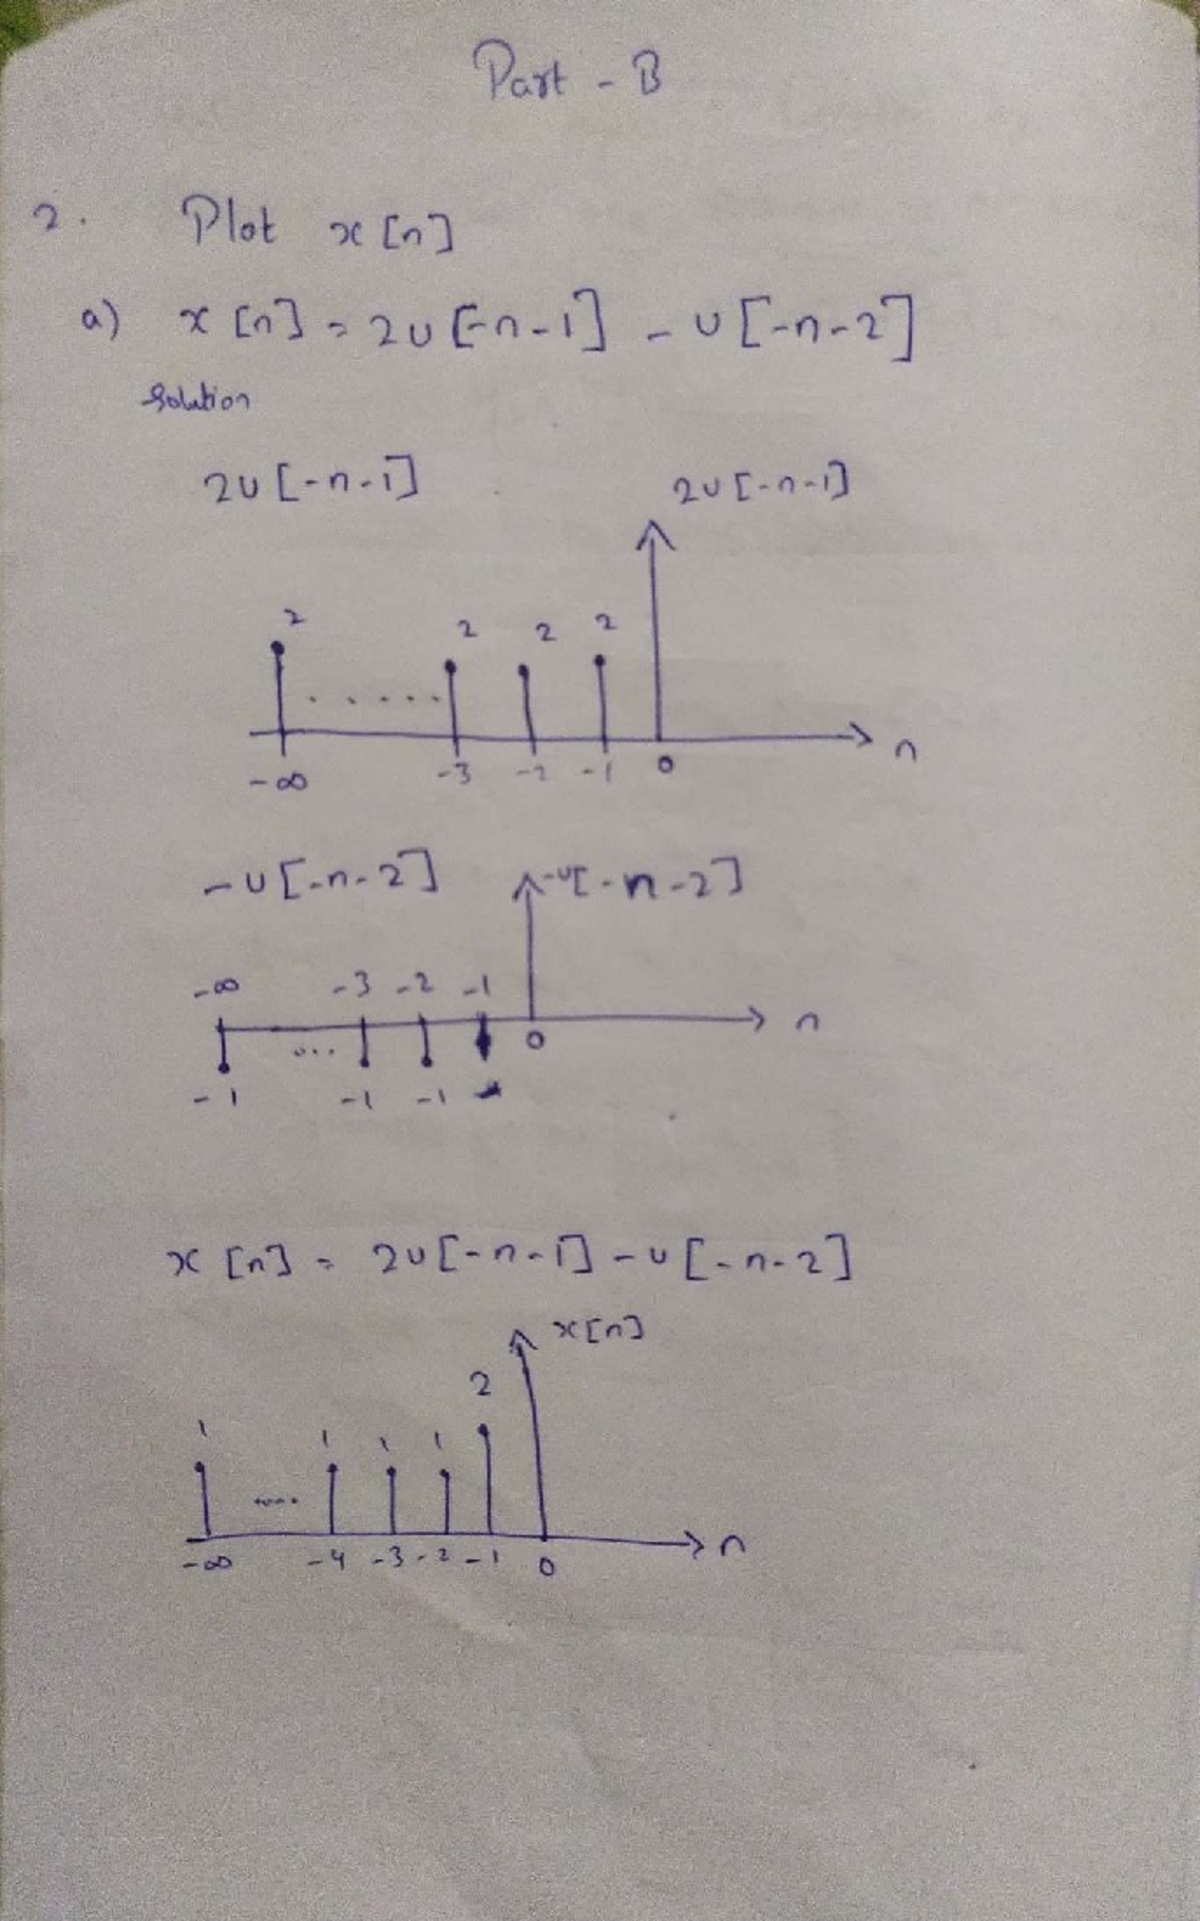 Part - B
2. Plot x[n]
a) x[n] = 2u[-n-1] - u[-n-2]
Solution
2u[-n-1] 2u[-n-1]
2 2 2 2
-∞ ..... -3 -2 -1 0 n
-u[-n-2] -u[-n-2]
-∞ -3 -2 -1
... 0 n
-1 -1 -1
x[n] = 2u[-n-1] - u[-n-2]
x[n]
2
1 1 1 1
....
-∞ -4 -3 -2 -1 0 n